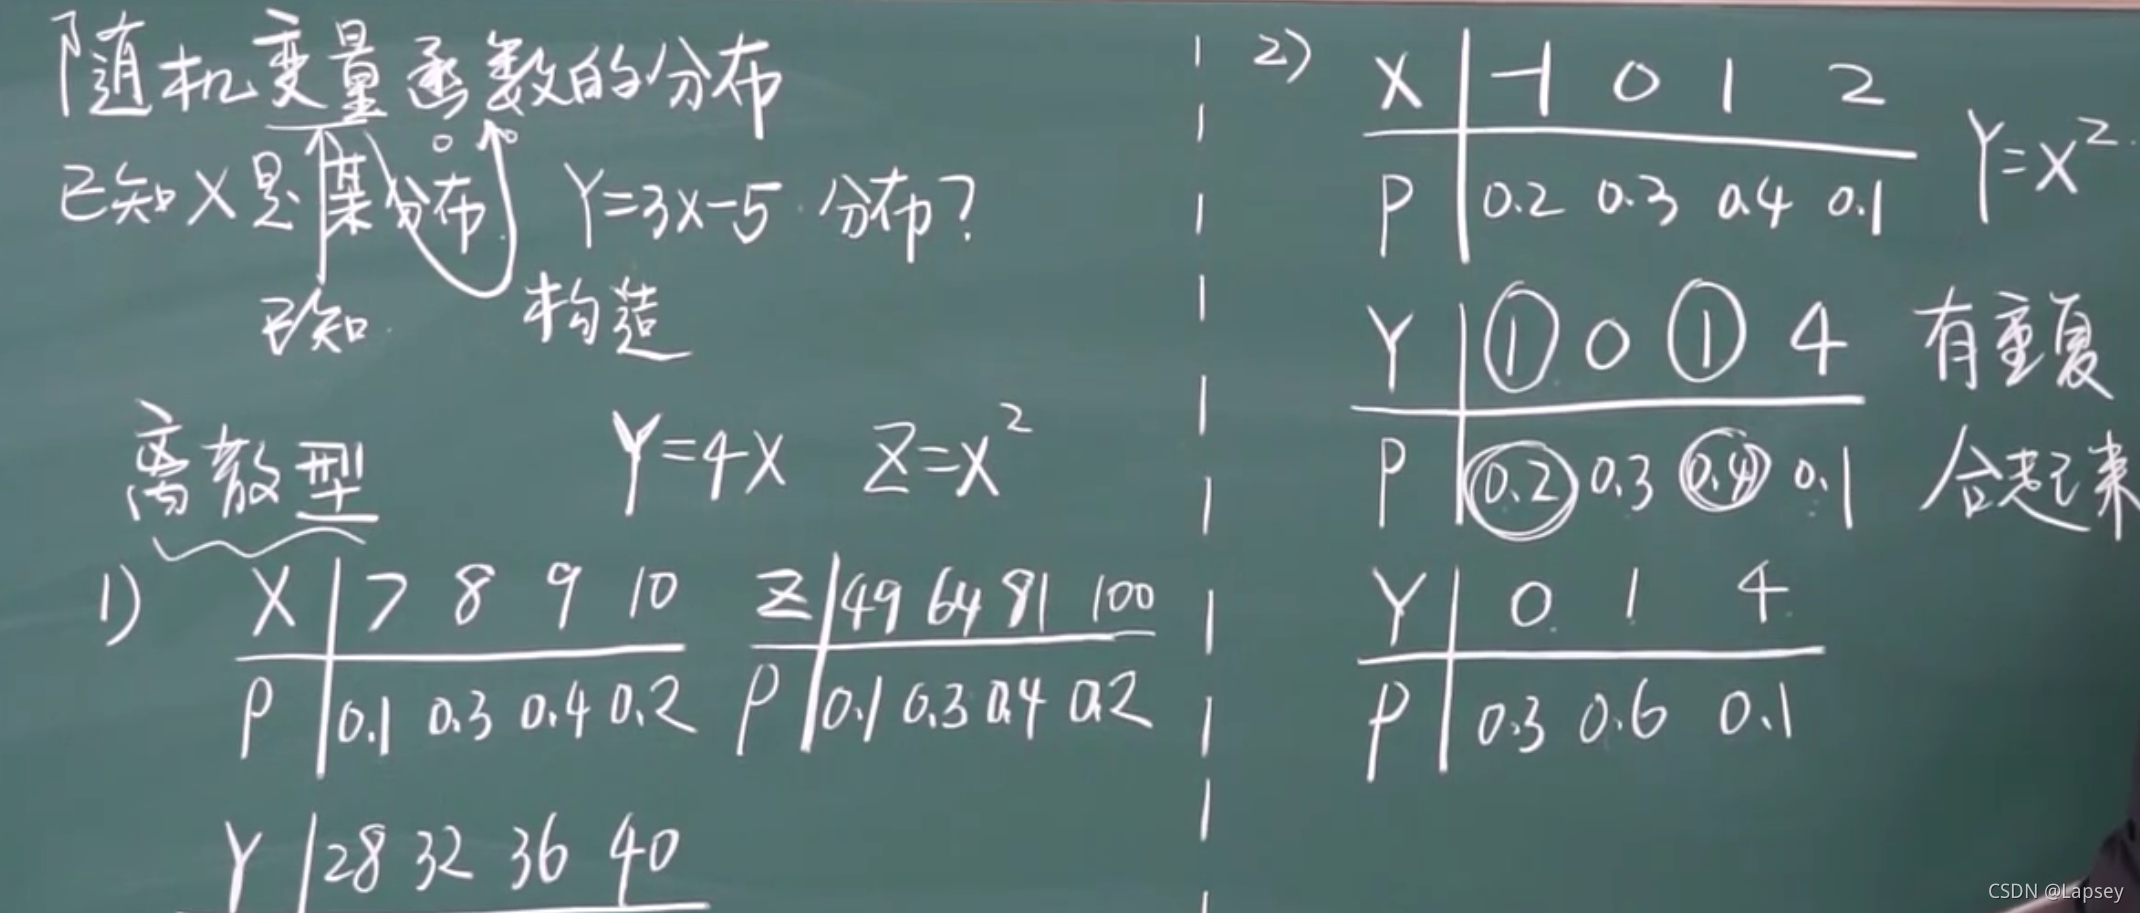 随机变量函数的分布
已知X是某分布 Y=3X-5 分布?
已知 构造
离散型 Y=4X Z=X²
1) X 7 8 9 10
P 0.1 0.3 0.4 0.2
Z 49 64 81 100
P 0.1 0.3 0.4 0.2
Y 28 32 36 40
2) X -1 0 1 2
P 0.2 0.3 0.4 0.1
Y=X²
Y ① 0 ① 4 有重复
P 0.2 0.3 0.4 0.1 合起来
Y 0 1 4
P 0.3 0.6 0.1
CSDN @Lapsey